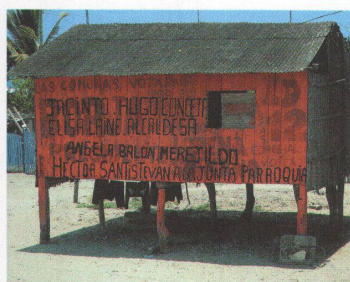 LAS COMUNAS VOTA
JACINTO HUGO CONCEJA
ELISA LAINE ALCALDESA
ANGELA BALON MEREJILDO
HECTOR SANTISTEVAN A LA JUNTA PARROQUIA